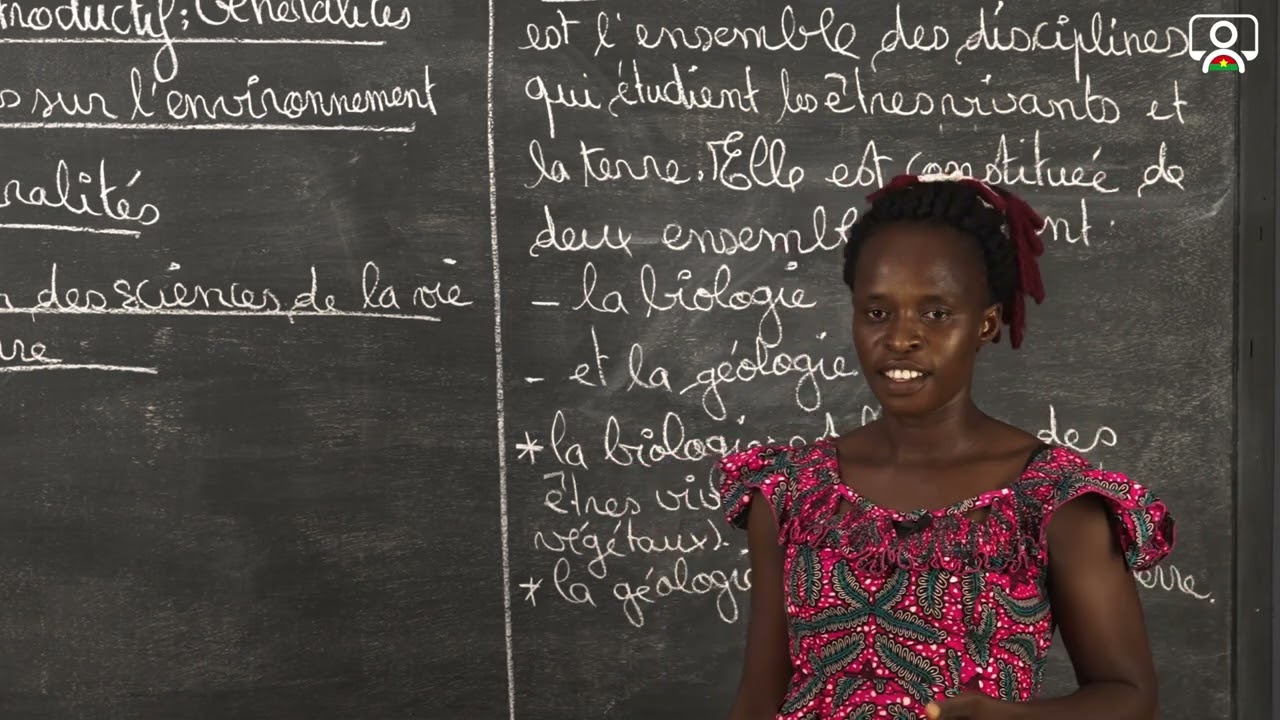 troductif: Généralités
s sur l'environnement
ralités
des sciences de la vie
rre
est l'ensemble des disciplines
qui étudient les êtres vivants et
la terre. Elle est constituée de
deux ensembl nt:
- la biologie
- et la géologie
* la biologie des
êtres viv
végétaux).
* la géologie erre.